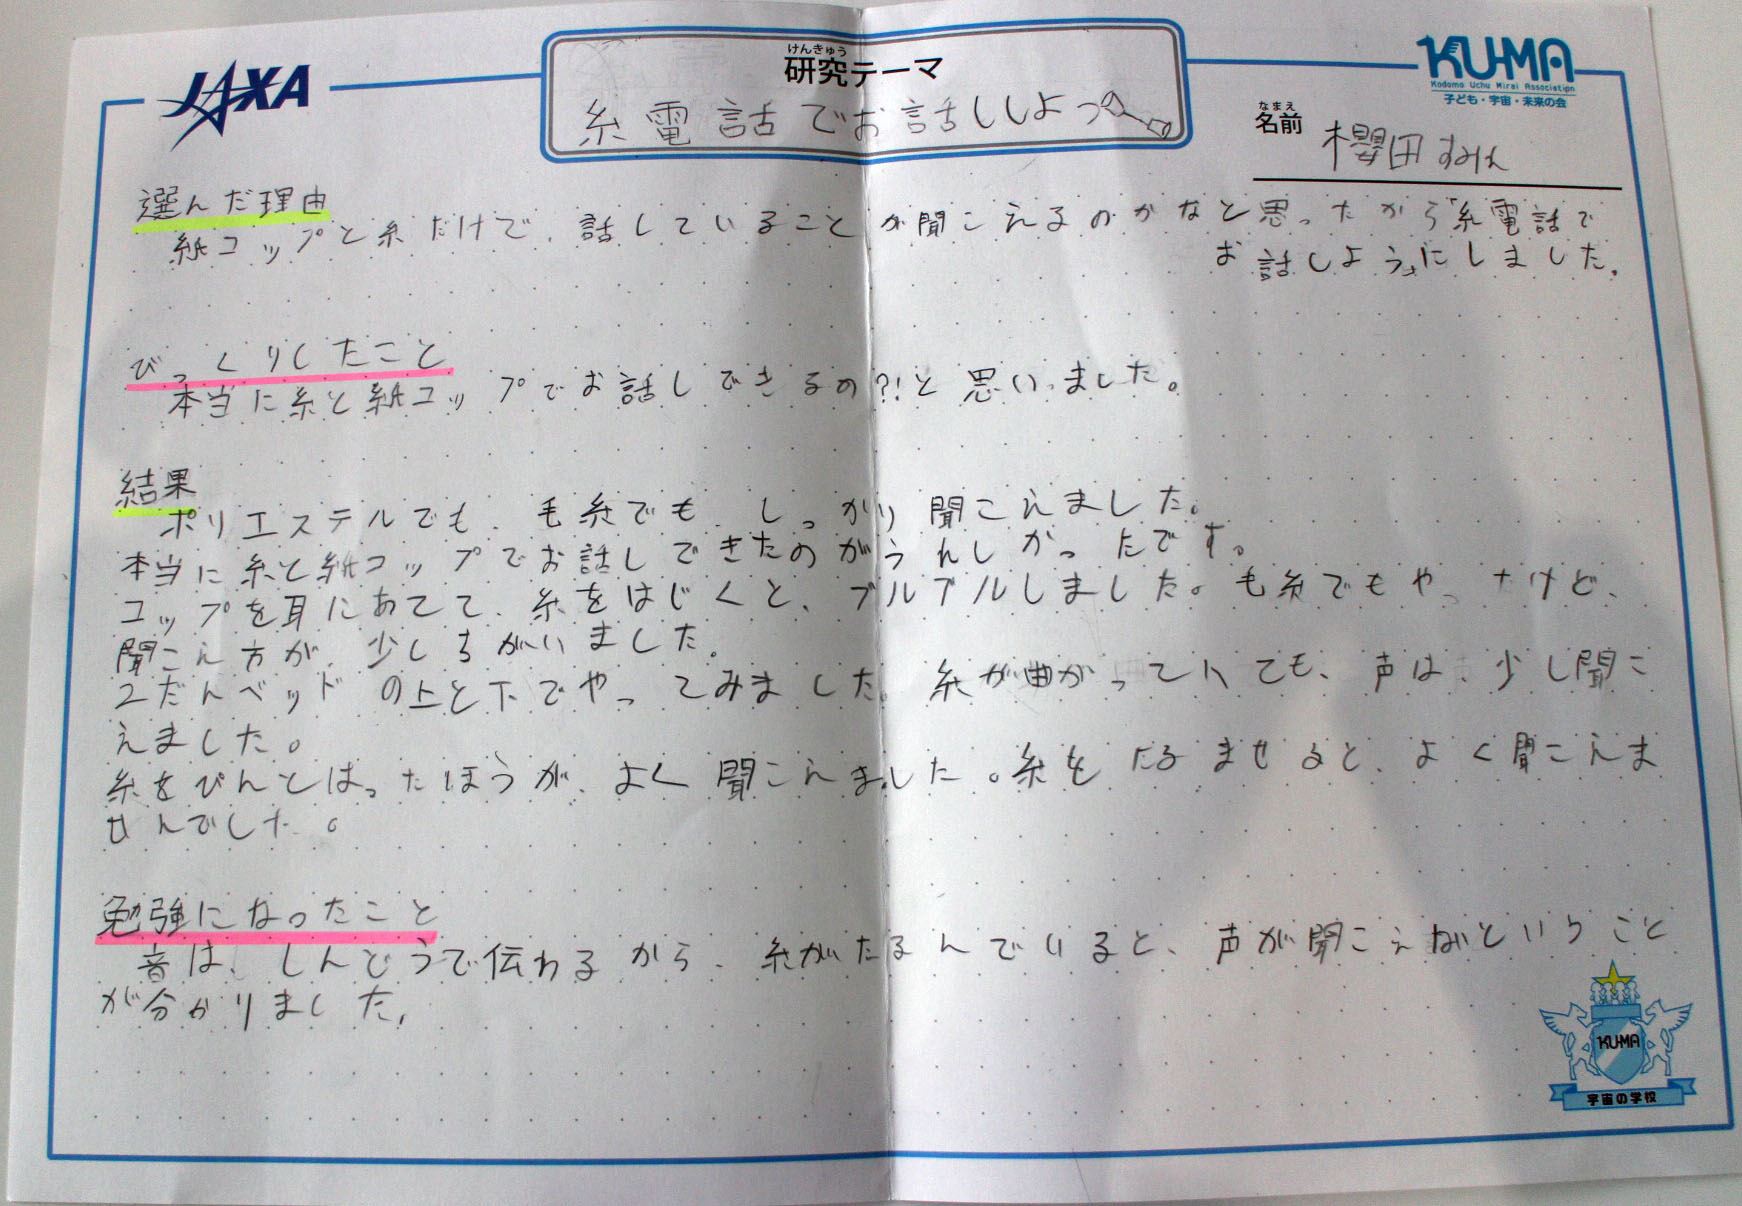 JAXA
けんきゅう
研究テーマ
糸電話でお話ししよう
KU-MA
Kodomo Uchu Mirai Association
子ども・宇宙・未来の会
なまえ
名前 櫻田すみれ
選んだ理由
紙コップと糸だけで、話していることが聞こえるのかなと思ったから「糸電話で
お話しよう」にしました。
びっくりしたこと
本当に糸と紙コップでお話しできるの?!と思いました。
結果
ポリエステルでも、毛糸でも、しっかり聞こえました。
本当に糸と紙コップでお話しできたのがうれしかったです。
コップを耳にあてて、糸をはじくと、ブルブルしました。毛糸でもやったけど、
聞こえ方が、少しちがいました。
2だんベッドの上と下でやってみました。糸が曲がっていても、声は、少し聞こ
えました。
糸をぴんとはったほうが、よく聞こえました。糸をたるませると、よく聞こえま
せんでした。
勉強になったこと
音は、しんどうで伝わるから、糸がたるんでいると、声が聞こえないということ
が分かりました。
KU-MA
宇宙の学校